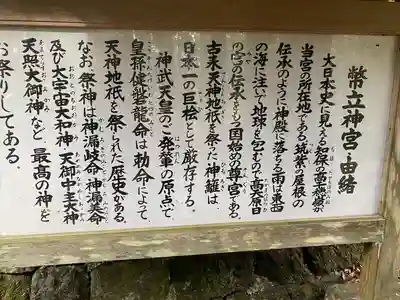 幣立神宮由緒
大日本史に見える知保の高千穂嶽が
当宮の所在地である。筑紫の屋根の
伝承のように神殿に落ちる雨は東西
の海に注いで地球を包むので高天原日
の宮の伝承をもつ国始めの尊宮である。
古来天神地祇を祭った神籬は、
日本一の巨桧として厳存する。
神武天皇のご発輦の原点で、
皇孫健磐龍命は勅命によって、
天神地祇を祭られた歴史がある。
なお、祭神は神漏岐命・神漏美命
及び大宇宙大和神・天御中主大神
天照大御神など、最高の神を
お祭りしてある。